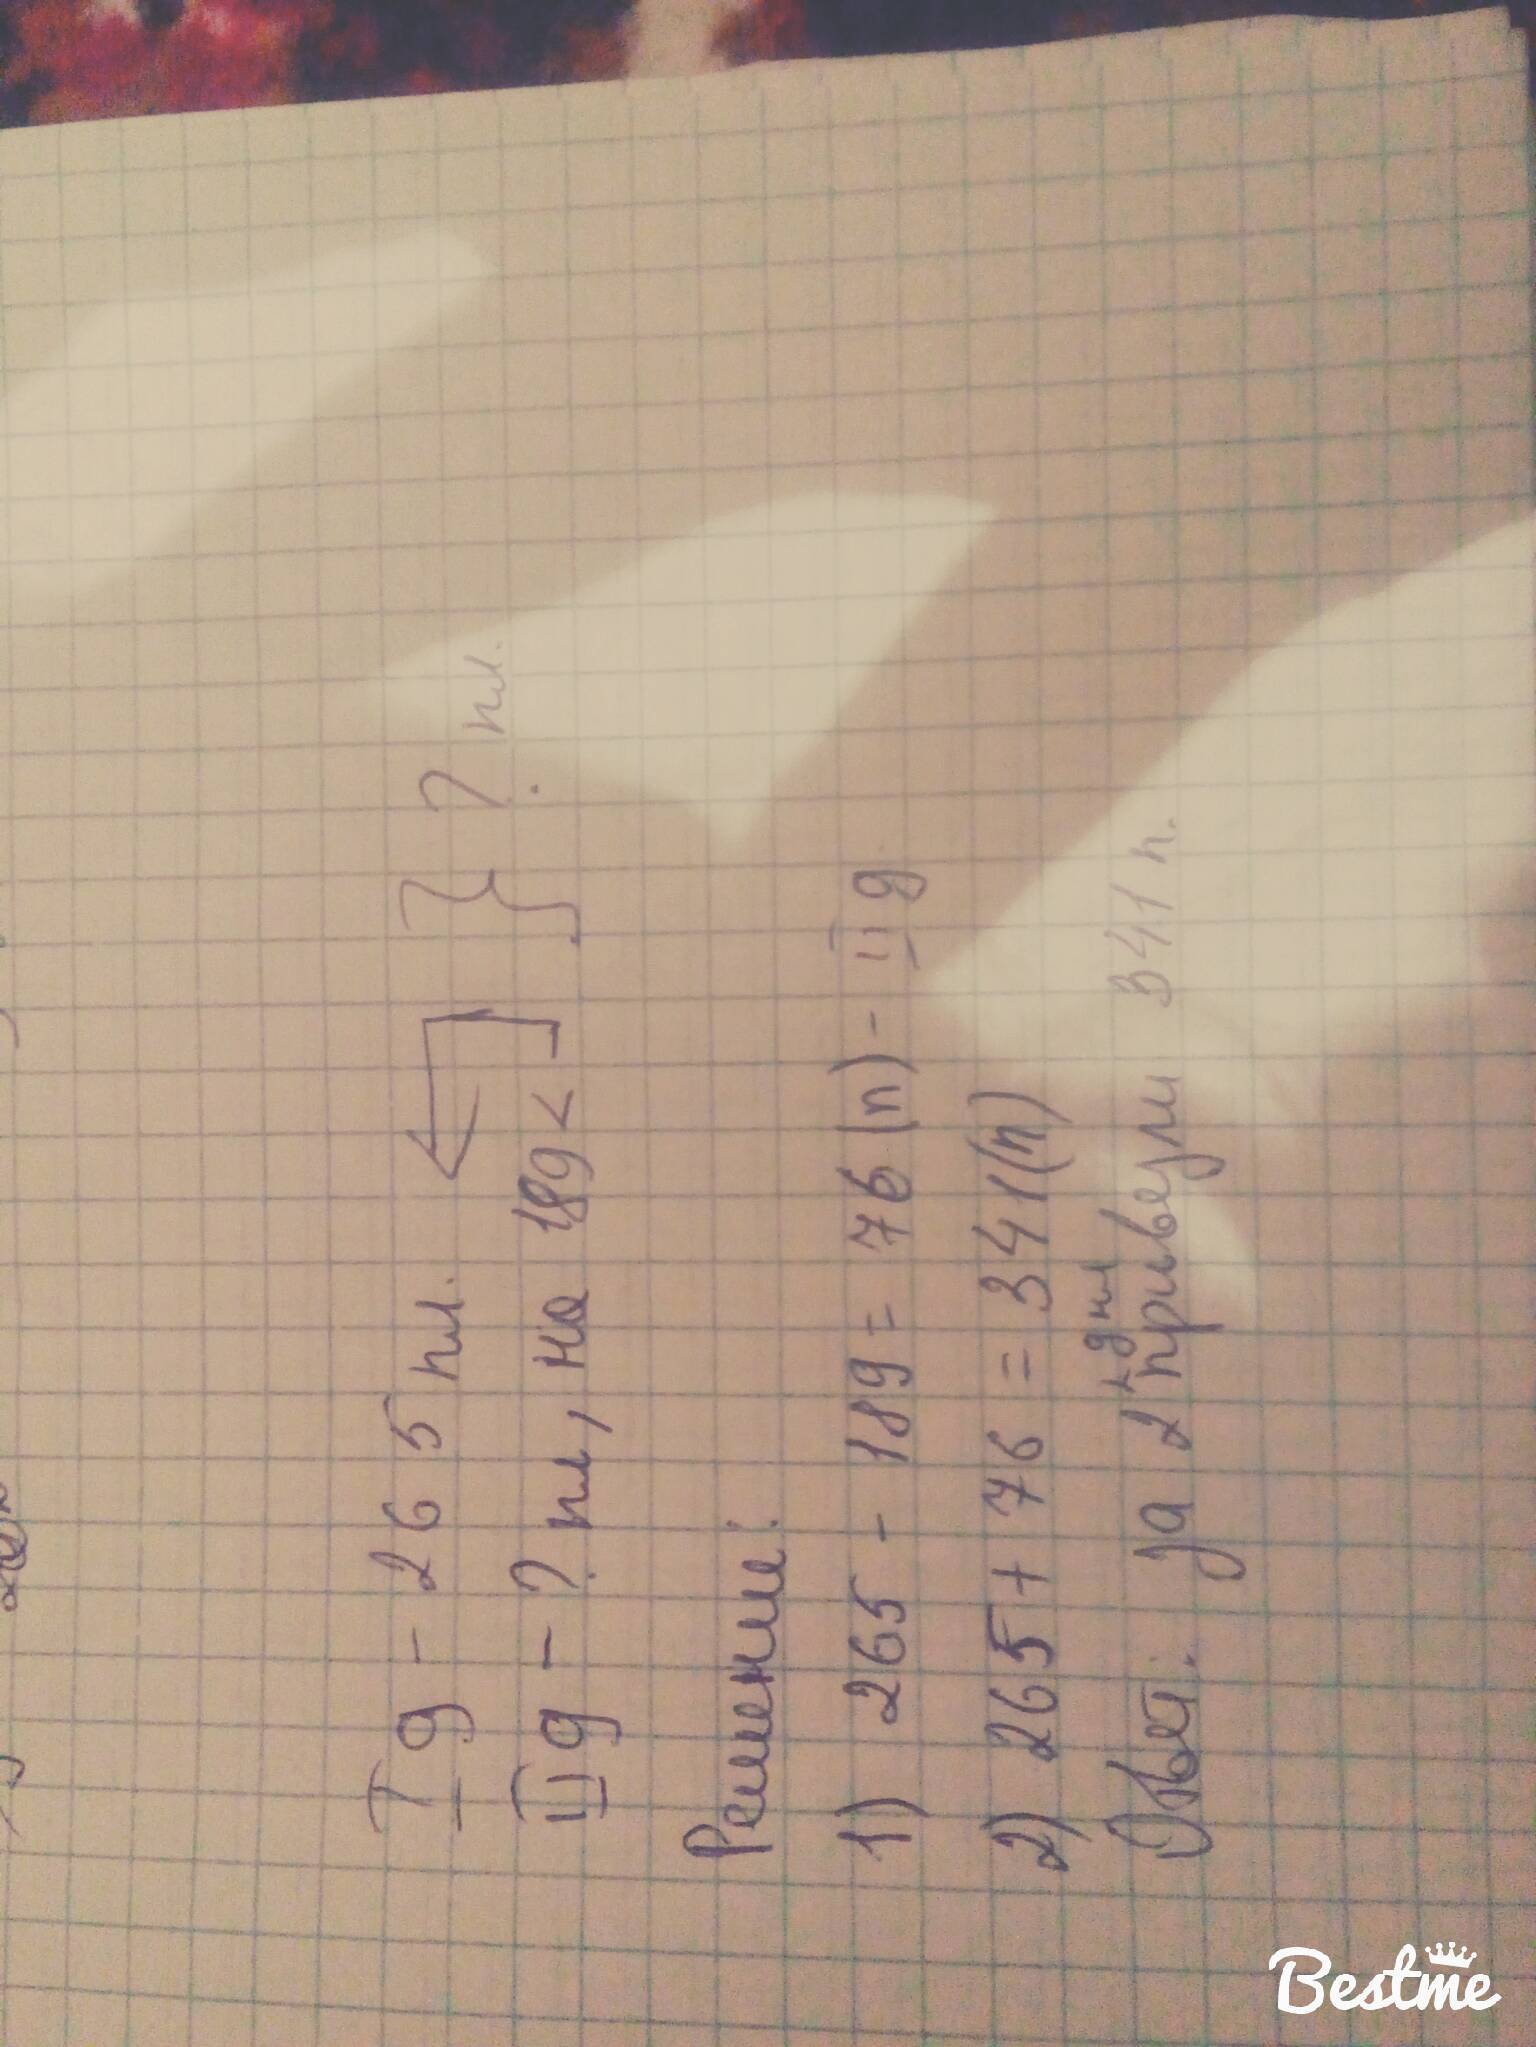 I д - 265 пл.
II д - ? пл, на 189 < } ? пл.
Решение:
1) 265 - 189 = 76 (п) - II д
2) 265 + 76 = 341 (п)
Ответ: за 2 дня привезли 341 п.
Bestme